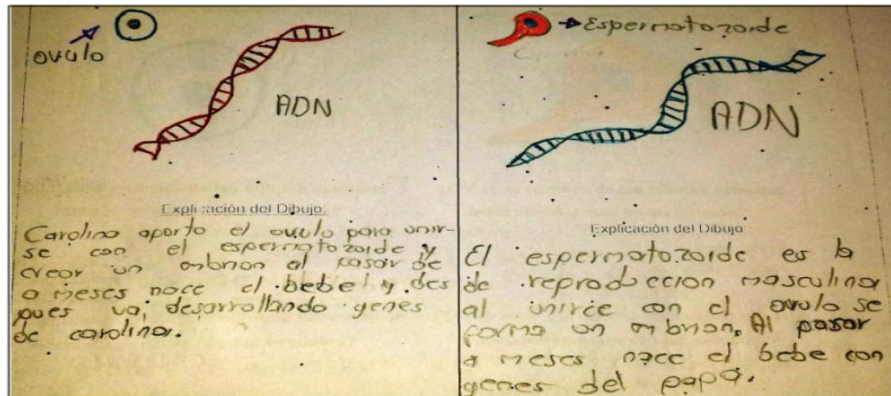 ovulo
ADN
Explicación del Dibujo:
Carolina aporto el ovulo para unir-
se con el espermatozoide y
crear un mbrion al pasar de
a meses nace el bebe y des
pues va, desarrollando genes
de carolina.
Espermatozoide
ADN
Explicación del Dibujo:
El espermatozoide es la
de reproduccion masculina
al unirce con el ovulo se
forma un mbrion. Al pasar
a meses nace el bebe con
genes del papa.